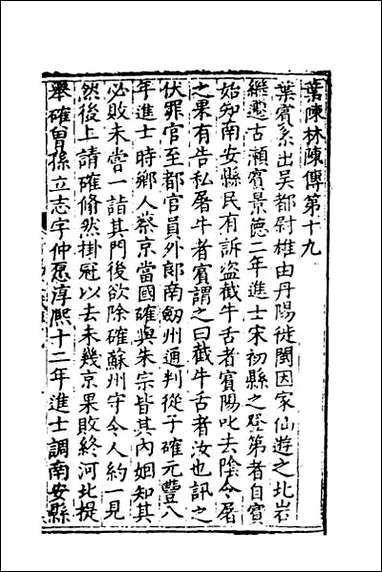 葉陳林陳傳第十九
葉賓系出吳都尉雄由丹陽徙閩因家仙遊之北岩
繼遷古瀨賓景德二年進士宋初縣之登第者自賓
始知南安縣民有訴盜截牛舌者賓陽叱去陰令屠
之果有告私屠牛者賓謂之曰截牛舌者汝也訊之
伏罪官至都官員外郎南劔州通判從子確元豐八
年進士時鄉人蔡京當國確與朱宗皆其內姻知其
必敗未嘗一詣其門後欲除確蘇州守令人約一見
然後上請確脩然掛冠以去未幾京果敗終河北提
舉確曾孫立志字仲愿淳熙十二年進士調南安縣